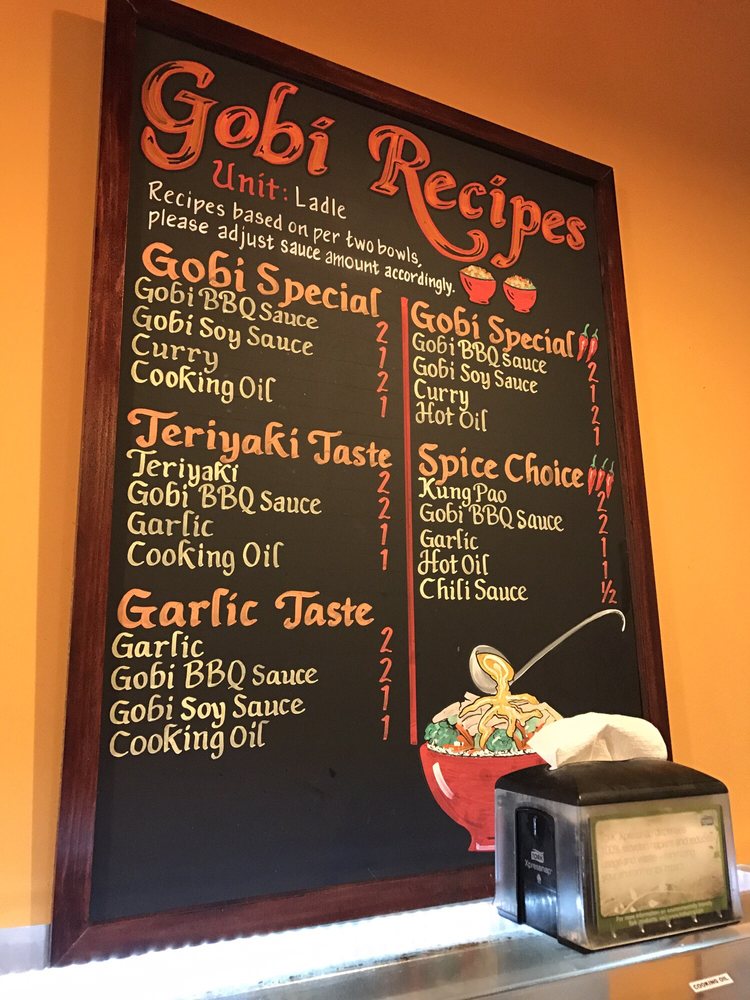 Gobi Recipes
Unit: Ladle
Recipes based on per two bowls,
please adjust sauce amount accordingly.
Gobi Special
Gobi BBQ Sauce 2
Gobi Soy Sauce 1
Curry 2
Cooking Oil 1
Teriyaki Taste
Teriyaki 2
Gobi BBQ Sauce 2
Garlic 1
Cooking Oil 1
Garlic Taste
Garlic 2
Gobi BBQ Sauce 2
Gobi Soy Sauce 1
Cooking Oil 1
Gobi Special
Gobi BBQ Sauce 2
Gobi Soy Sauce 1
Curry 2
Hot Oil 1
Spice Choice
Kung Pao 2
Gobi BBQ Sauce 2
Garlic 1
Hot Oil 1
Chili Sauce 1/2
Xpressnap
COOKING OIL